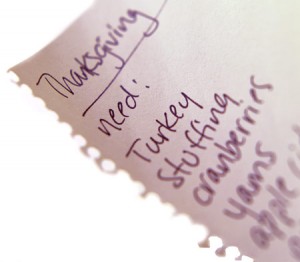 Thanksgiving
need:
Turkey
stuffing
cranberries
yams
apple